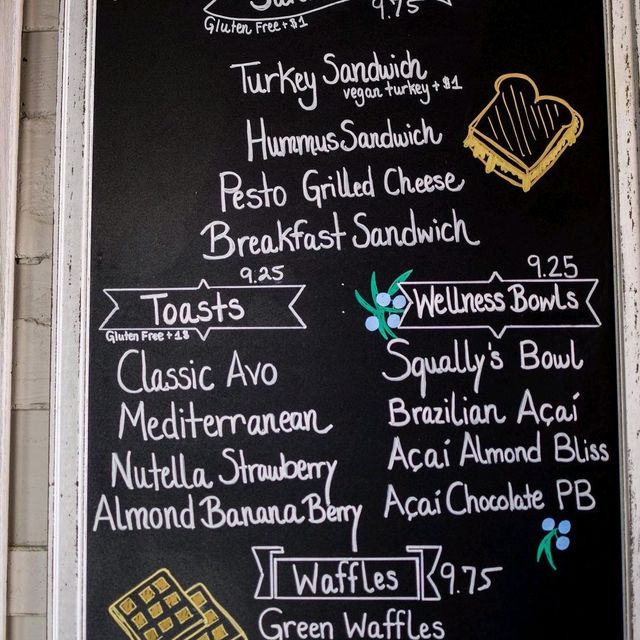 9.75
Gluten Free + $1
Turkey Sandwich
vegan turkey + $1
Hummus Sandwich
Pesto Grilled Cheese
Breakfast Sandwich
9.25
Toasts
Gluten Free + 1$
Classic Avo
Mediterranean
Nutella Strawberry
Almond Banana Berry
9.25
Wellness Bowls
Squally's Bowl
Brazilian Açaí
Açaí Almond Bliss
Açaí Chocolate PB
Waffles 9.75
Green Waffles